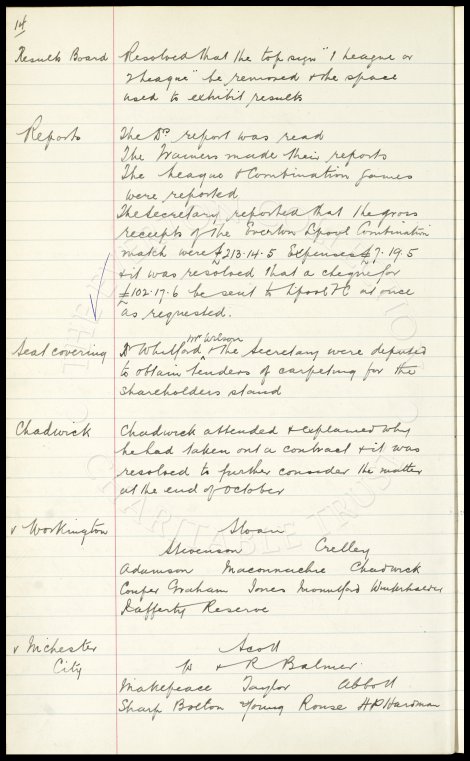 14
Results Board Resolved that the top sign "1 League or
2 League" be removed & the space
used to exhibit results
Reports The Drs report was read
The Trainers made their reports
The League & Combination games
were reported
The Secretary reported that the gross
receipts of the Everton Lpool Combination
match were £213.14.5 Expenses £7.19.5
& it was resolved that a cheque for
£102.17.6 be sent to Lpool FC at once
as requested.
Seat covering Dr Whitford, Mr Wilson & the Secretary were deputed
to obtain tenders of carpeting for the
shareholders stand
Chadwick Chadwick attended & explained why
he had taken out a contract & it was
resolved to further consider the matter
at the end of October
v Workington Sloan
Stevenson Crelley
Adamson Maconnachie Chadwick
Couper Graham Jones Mountford Winterhalder
Rafferty Reserve
v Mchester Scott
City W & R Balmer
Makepeace Taylor Abbott
Sharp Bolton Young Rouse HP Hardman
CHARITABLE TRUST